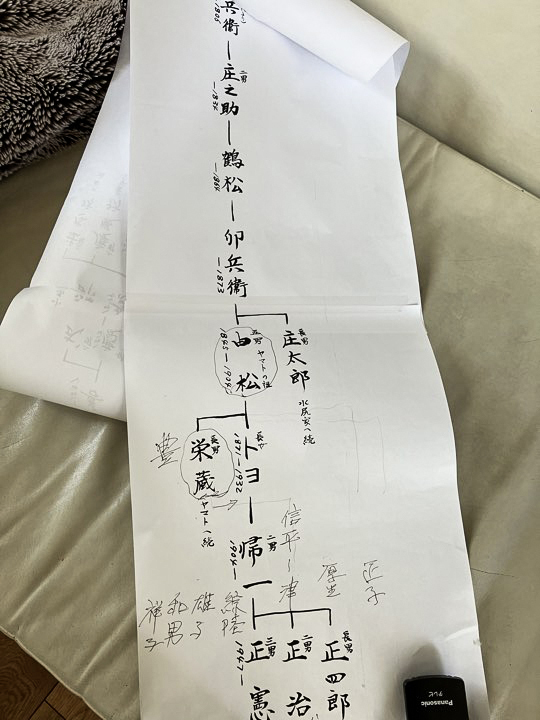 兵衛
1805
二男
庄之助
—1834
鶴松
—1864
卯兵衛
—1873
長男
庄太郎
水尻家へ続
五男
由松
ヤマトの祖
1845—1904
長女
トヨ
1871—1932
長男
栄蔵
ヤマトへ続
豊
二男
帰一
1904—
信平
津
厚生
正子
綾
雄子
和男
祥子
長男
正四郎
二男
正治
三男
正憲
1947—
Panasonic
テレビ